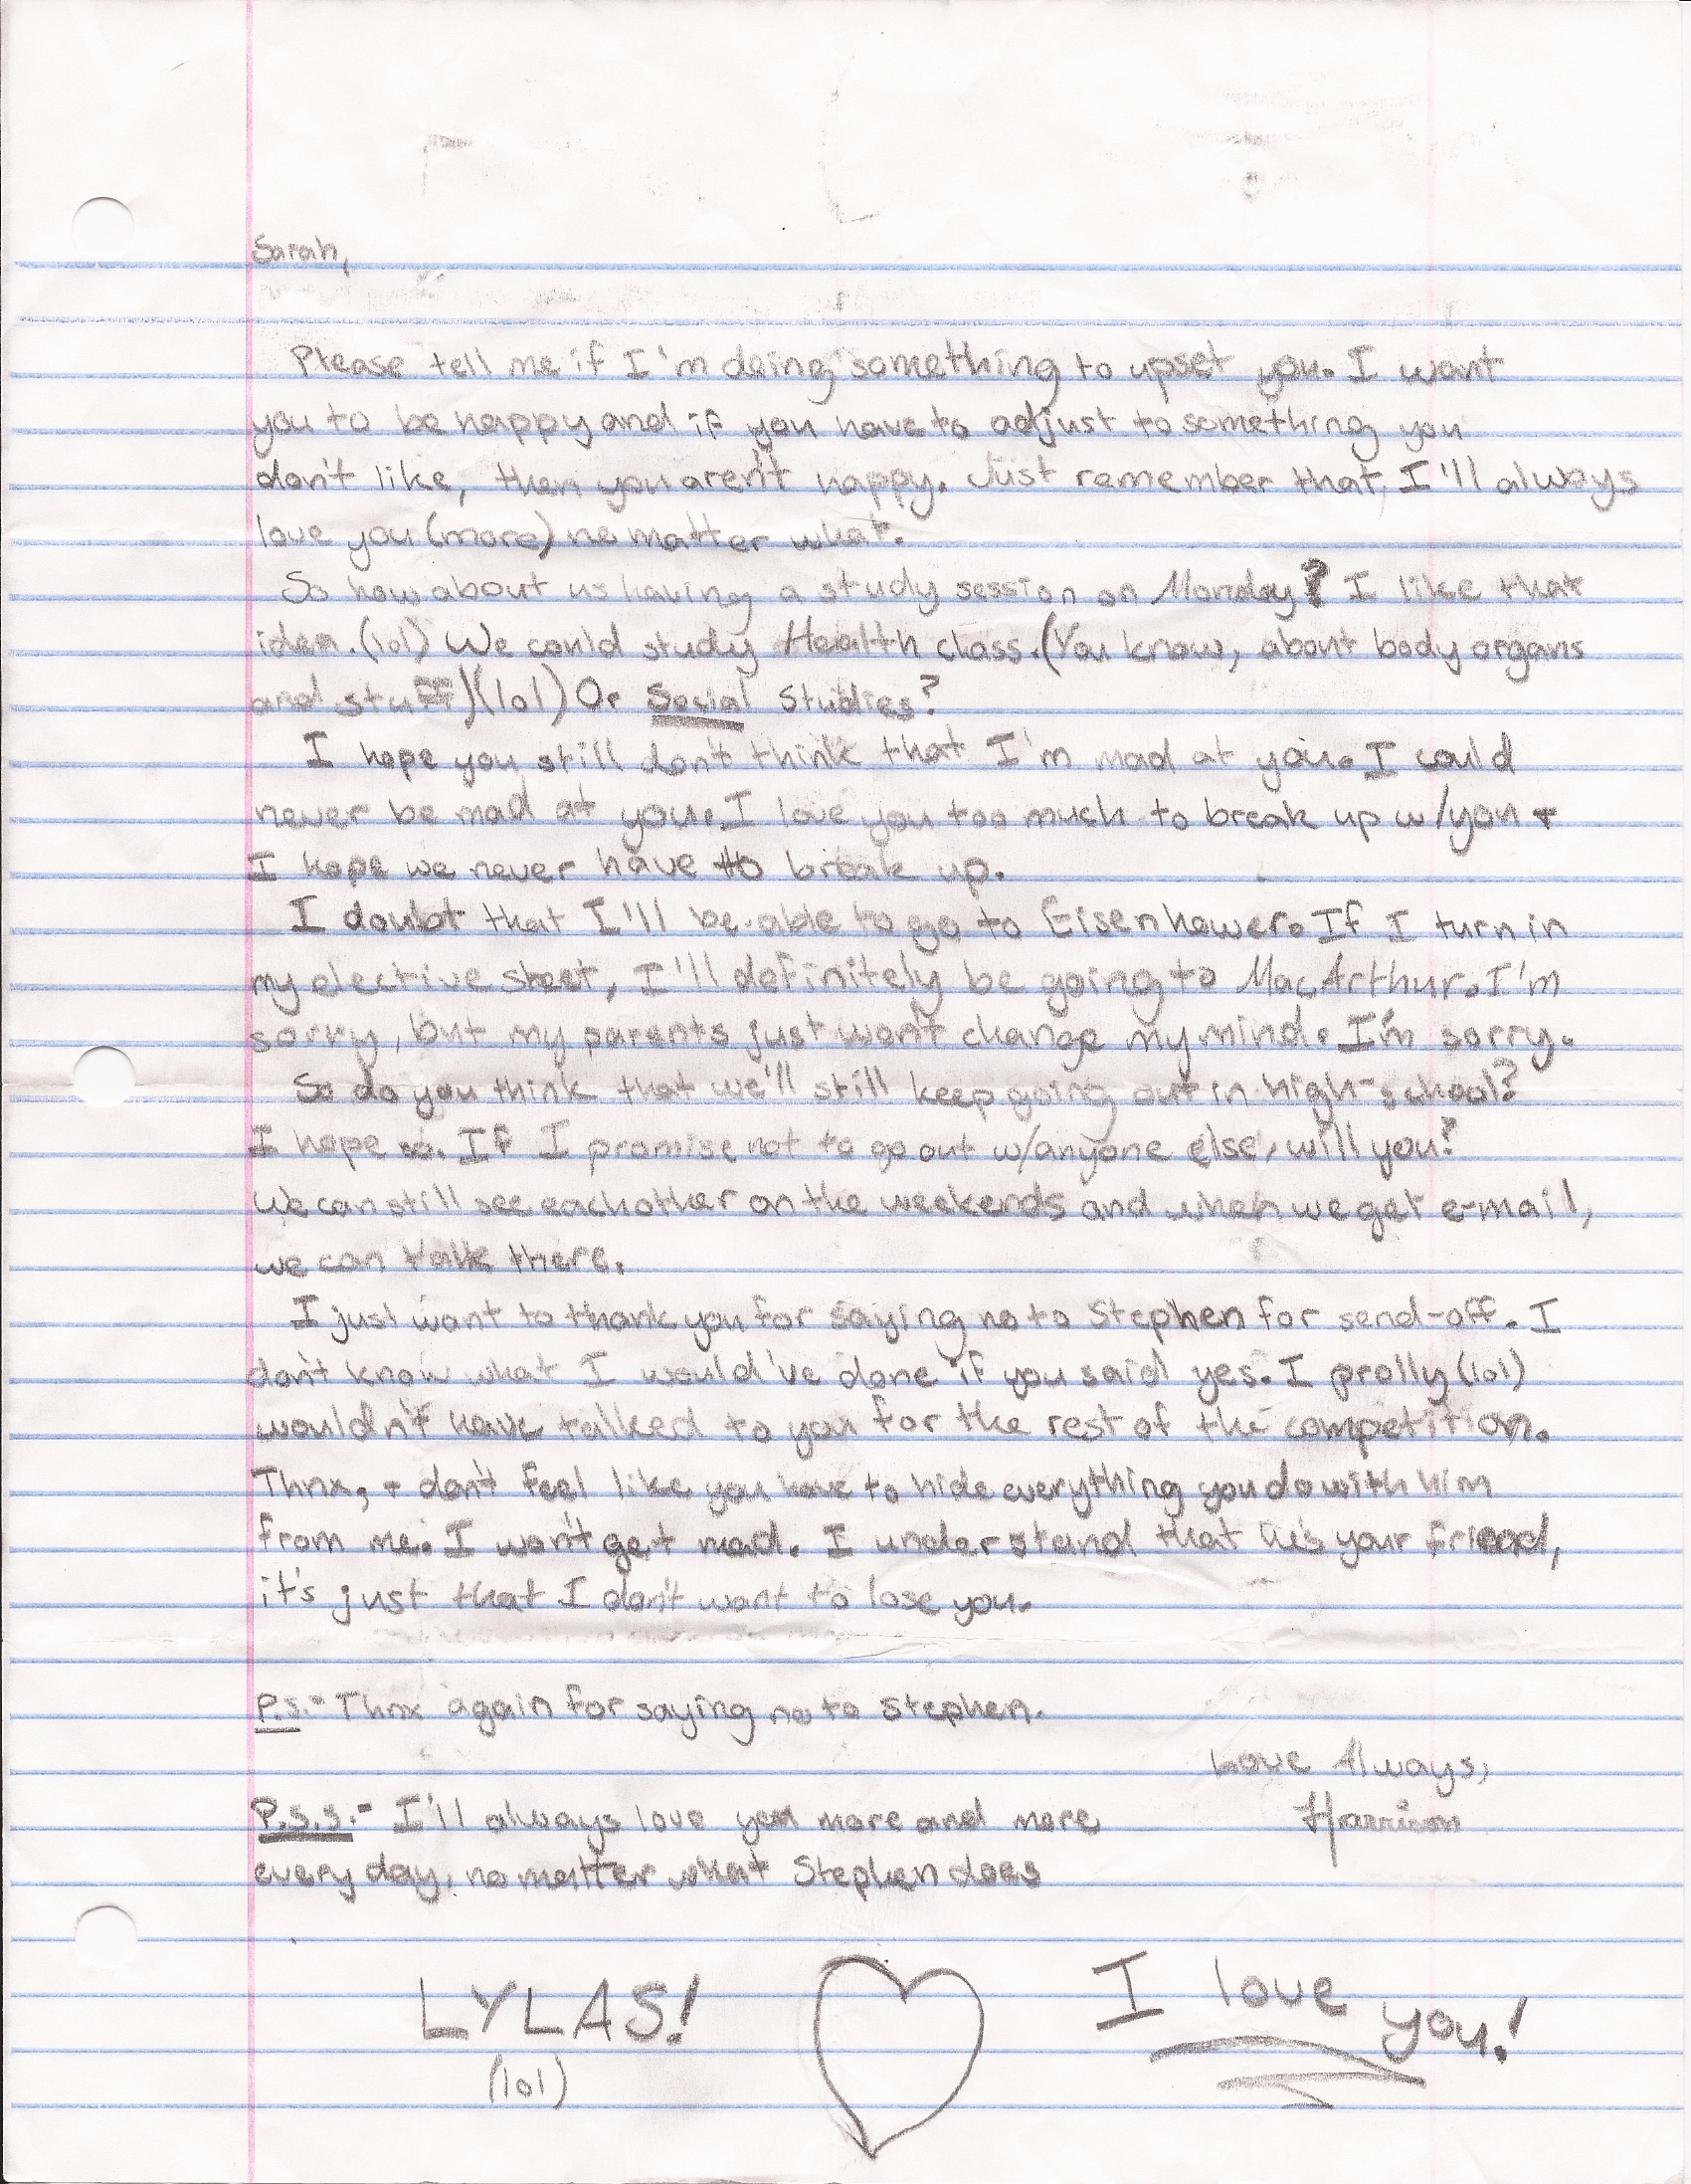 Sarah,
Please tell me if I'm doing something to upset you. I want
you to be happy and if you have to adjust to something you
don't like, then you aren't happy. Just remember that I'll always
love you (more) no matter what.
So how about us having a study session on Monday? I like that
idea. (lol) We could study Health class. (You know, about body organs
and stuff) (lol) Or Social Studies?
I hope you still don't think that I'm mad at you. I could
never be mad at you. I love you too much to break up w/you +
I hope we never have to break up.
I doubt that I'll be able to go to Eisenhower. If I turn in
my elective sheet, I'll definitely be going to MacArthur. I'm
sorry, but my parents just won't change my mind. I'm sorry.
So do you think that we'll still keep going out in high-school?
I hope so. If I promise not to go out w/anyone else, will you?
We can still see eachother on the weekends and when we get e-mail,
we can talk there.
I just want to thank you for saying no to Stephen for send-off. I
don't know what I would've done if you said yes. I prolly (lol)
wouldn't have talked to you for the rest of the competition.
Thnx, + don't feel like you have to hide everything you do with him
from me. I won't get mad. I understand that he's your friend,
it's just that I don't want to lose you.
P.S.- Thnx again for saying no to Stephen.
Love Always,
Harrison
P.S.S.- I'll always love you more and more
every day, no matter what Stephen does
LYLAS!
(lol)
I love you!